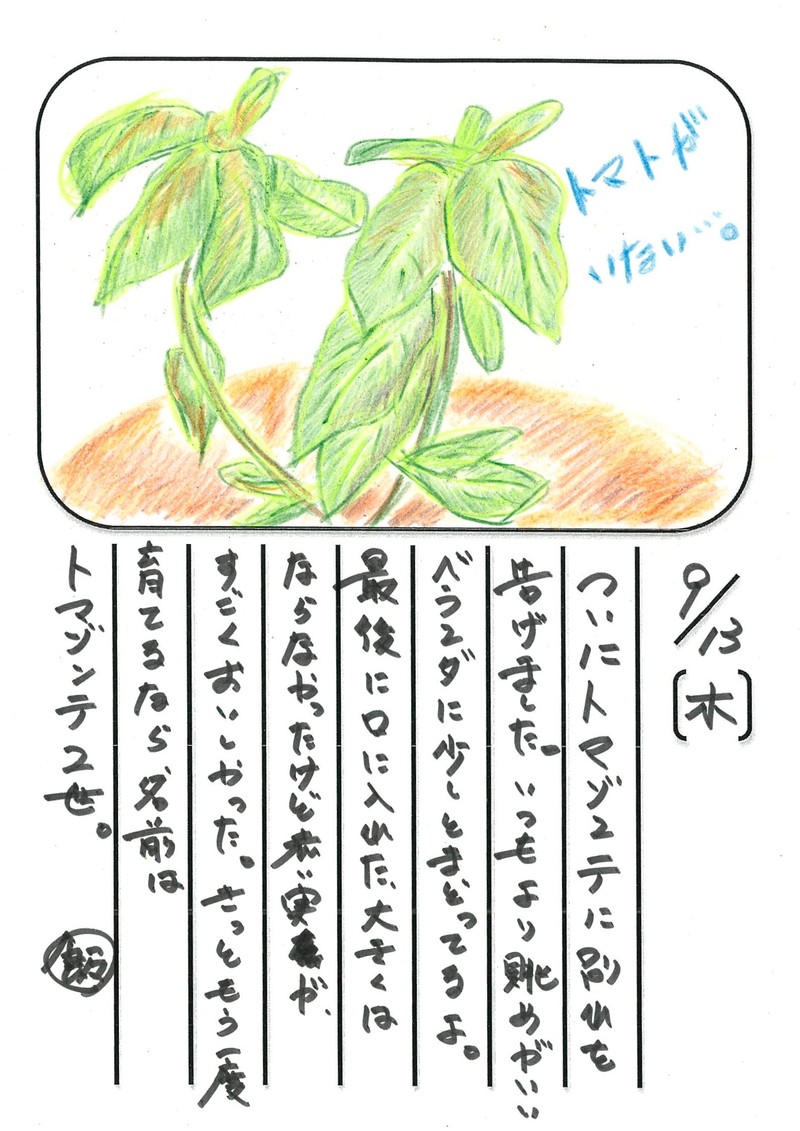 トマトが
いない…。
9/13〔木〕
ついにトマゾンテに別れを
告げました。いつもより眺めがいい
ベランダに少しとまどってるよ。
最後に口に入れた、大きくは
ならなかったけど赤い実が、
すごくおいしかった。きっともう一度
育てるなら名前は
トマゾンテ2世。
飯